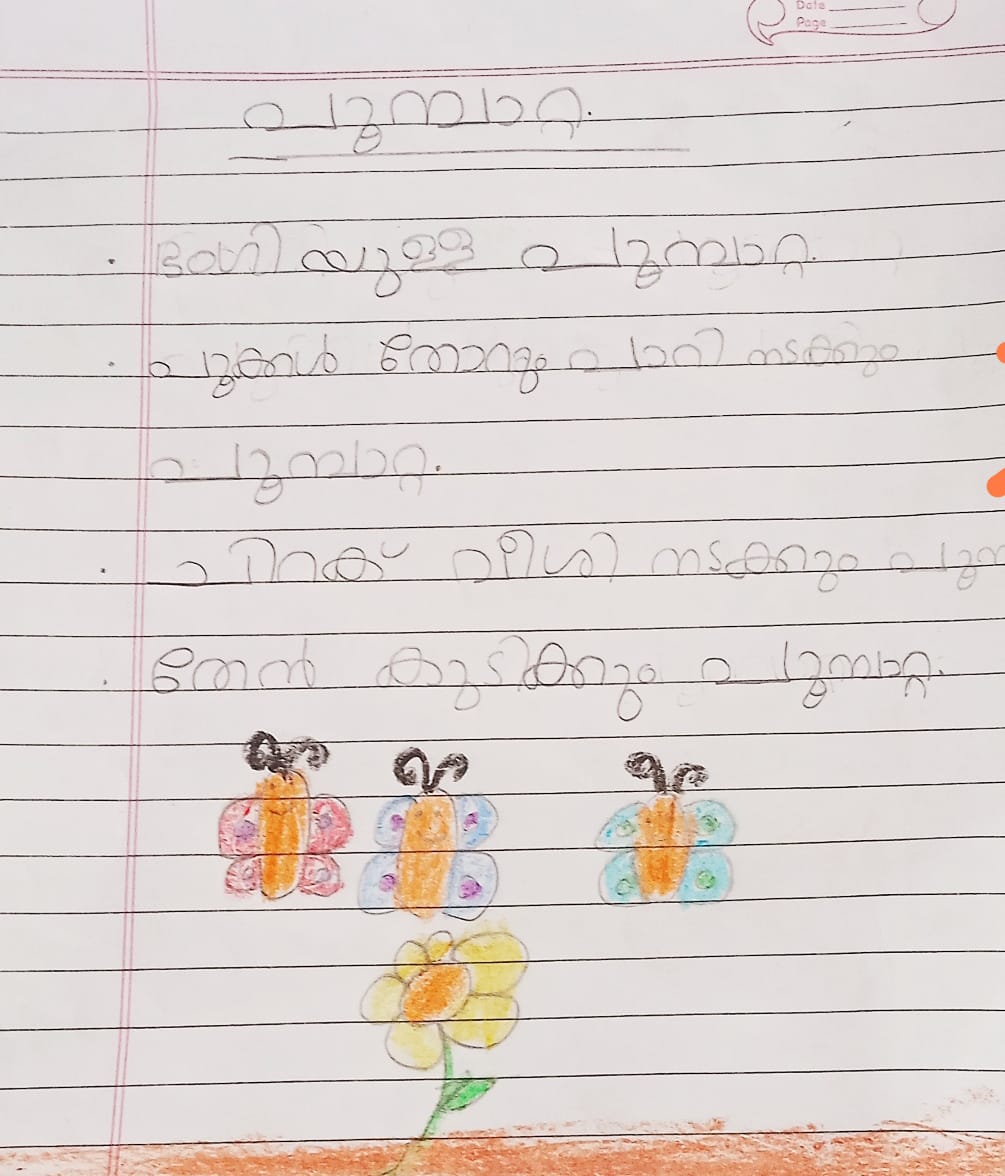 Date
Page
പൂമ്പാറ്റ.
. ഭംഗിയുള്ള പൂമ്പാറ്റ.
. പൂക്കൾ തോറും പാറി നടക്കും
പൂമ്പാറ്റ.
. ചിറക് വീശി നടക്കും
. തേൻ കുടിക്കും പൂമ്പാറ്റ.